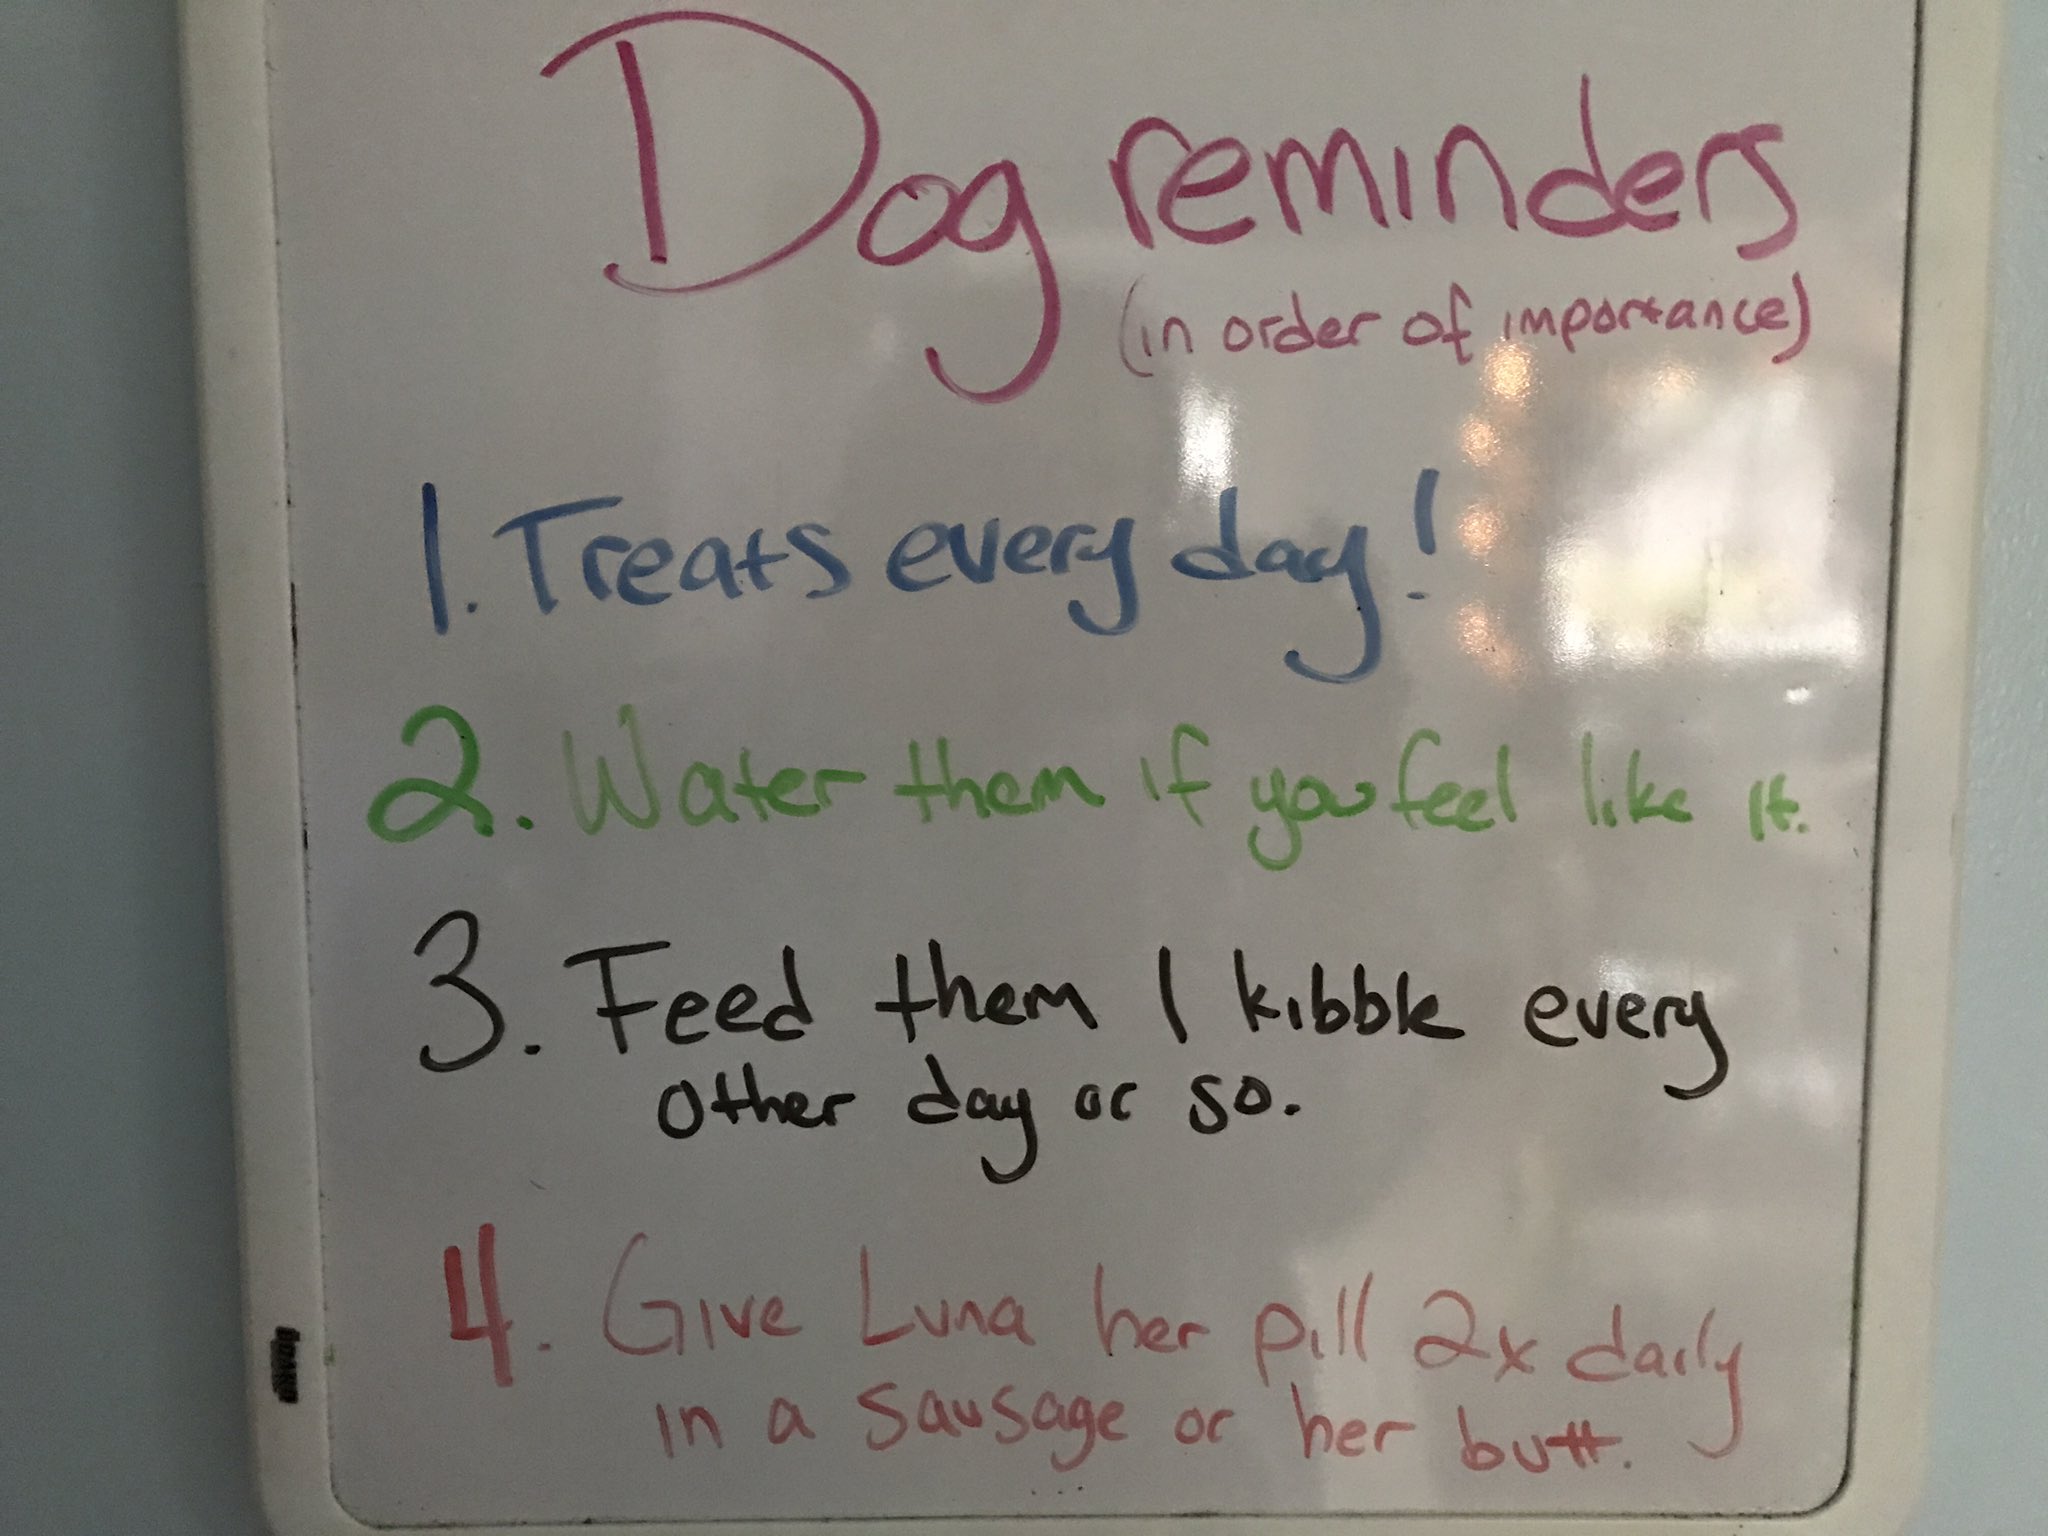 Dog reminders
(in order of importance)
1. Treats every day!
2. Water them if you feel like it.
3. Feed them 1 kibble every
other day or so.
4. Give Luna her pill 2x daily
in a sausage or her butt.